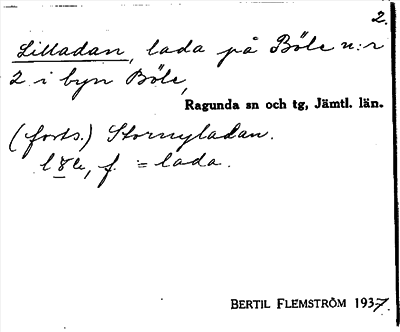 2.
Lilladan, lada på Böle n:r
2 i byn Böle,
Ragunda sn och tg, Jämtl. län.
(forts.) Stornyladan.
f. = lada.
BERTIL FLEMSTRÖM 1937.